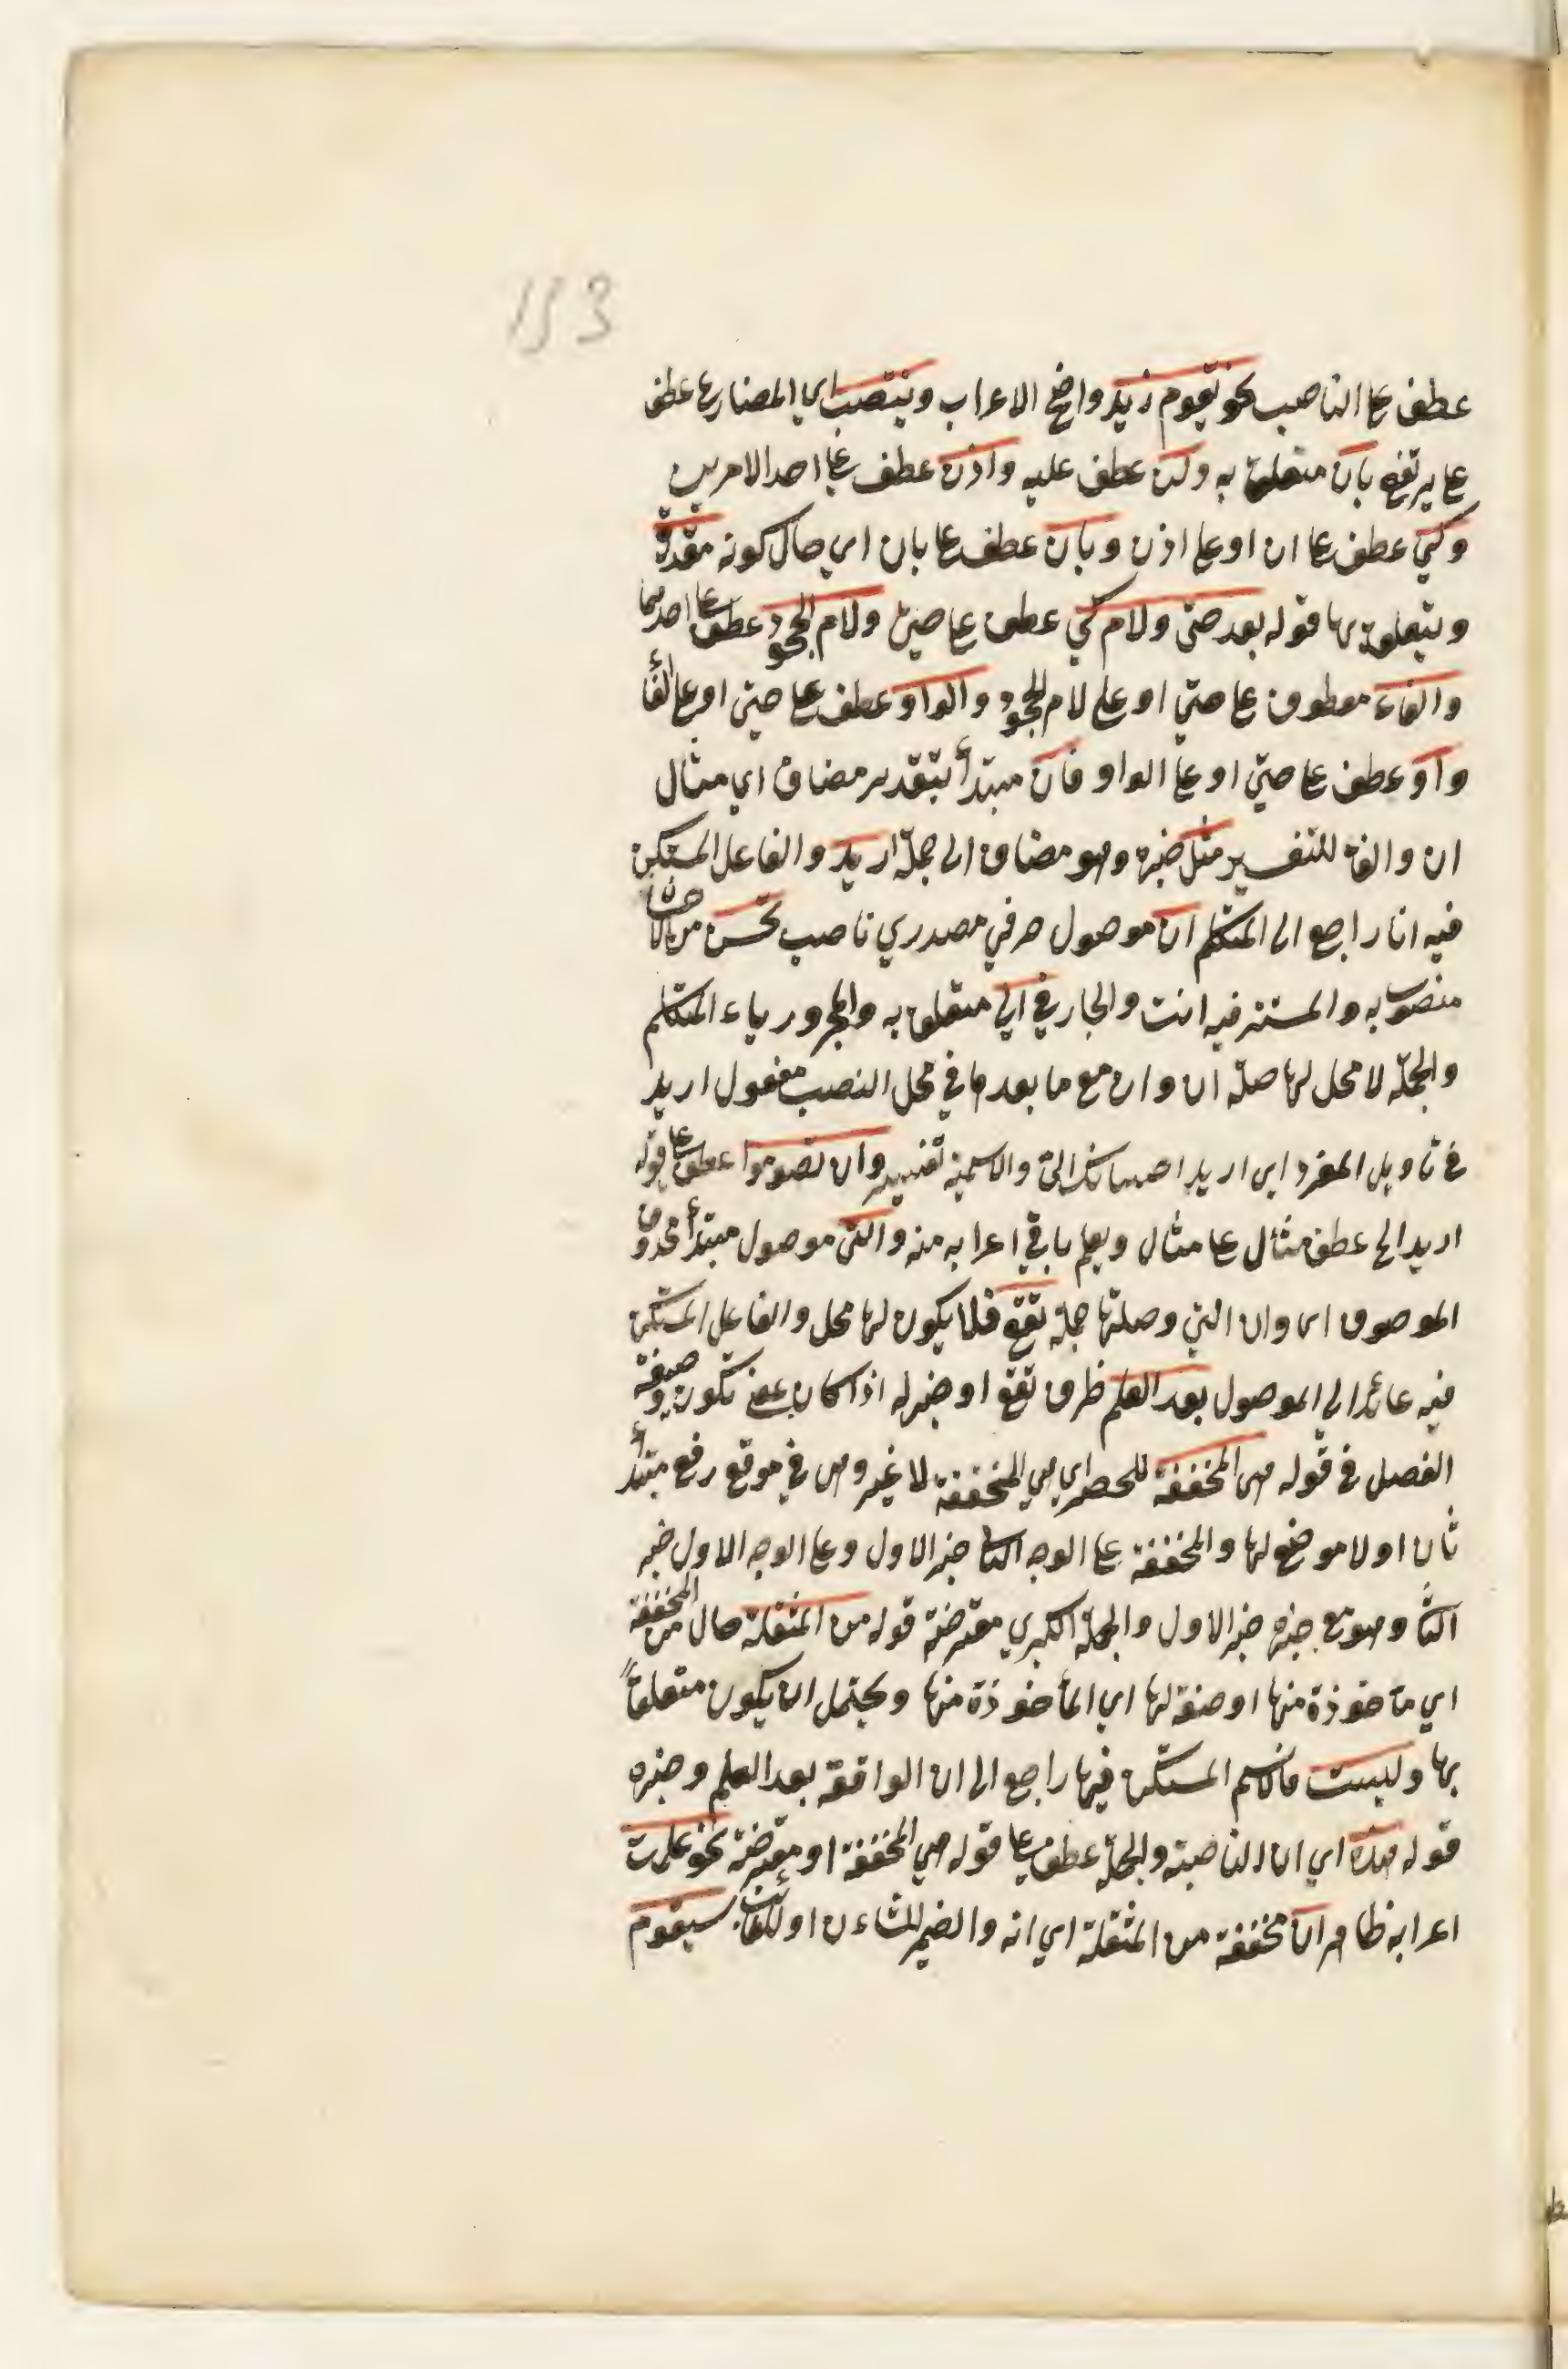 153
عطف عا الناصب نحو يقوم زيد واضح الاعراب وينتصب اي المضارع عطف
عا يرتفع بان متعلق به ولن عطف عليه واذن عطف عا احد الامرين
وكي عطف عا ان او عا اذن وبان عطف عا بان اي حال كونه مقدرة
ويتعلق بها قوله بعد حتى ولام كي عطف عا حتى ولام الجحود عطف عا احدهما
والفاء معطوف عا حتي او علي لام الجحود والواو عطف عا حتي او عا الفاء
واو عطف عا حتي او عا الواو فان مبتدأ بتقدير مضاف اي مثال
ان والفاء للتفسير مثل خبره وهو مضاف الى جملة اريد والفاعل المستكن
فيه انا راجع الى المتكلم ان موصول حرفي مصدري ناصب تحسن من الاحسان
منصوب به والمستتر فيه انت والجار في الي متعلق به والمجرور ياء المتكلم
والجملة لا محل لها صلة ان وان مع ما بعدها في محل النصب مفعول اريد
في تأويل المفرد اي اريد احسانك الىّ والاسمية تفسير وان تصوموا عطف عا قوله
اريد الخ عطف مثال عا مثال ويعلم باقي اعرابه منه والتي موصول مبتدأ محذوف
الموصوف اي وان التي وصلتها جملة تقع فلا يكون لها محل والفاعل المستكن
فيه عائد الي الموصول بعد العلم ظرف تقع او خبر له اذا كان بمعنى تكون وصيغة
الفصل في قوله هي المخففة للحصر اي هي المخففة لا غير وهي في موقع رفع مبتدأ
ثان او لا موضع لها والمخففة عا الوجه الثا خبر الاول وعا الوجه الاول خبر
الثا وهو مع خبره خبر الاول والجملة الكبري معترضة قوله من المثقلة حال من المخففة
اي مأخوذة منها او صفة لها اي المأخوذة منها ويحتمل ان يكون متعلقاً
بها وليست فالاسم المستكن فيها راجع الى ان الواقعة بعد العلم وخبره
قوله هذه اي ان الناصبة والجملة عطف عا قوله هي المخففة او معترضة نحو علمت
اعرابه ظاهر ان مخففة من المثقلة اي انه والضمير للشاءن او للغائب سيقوم